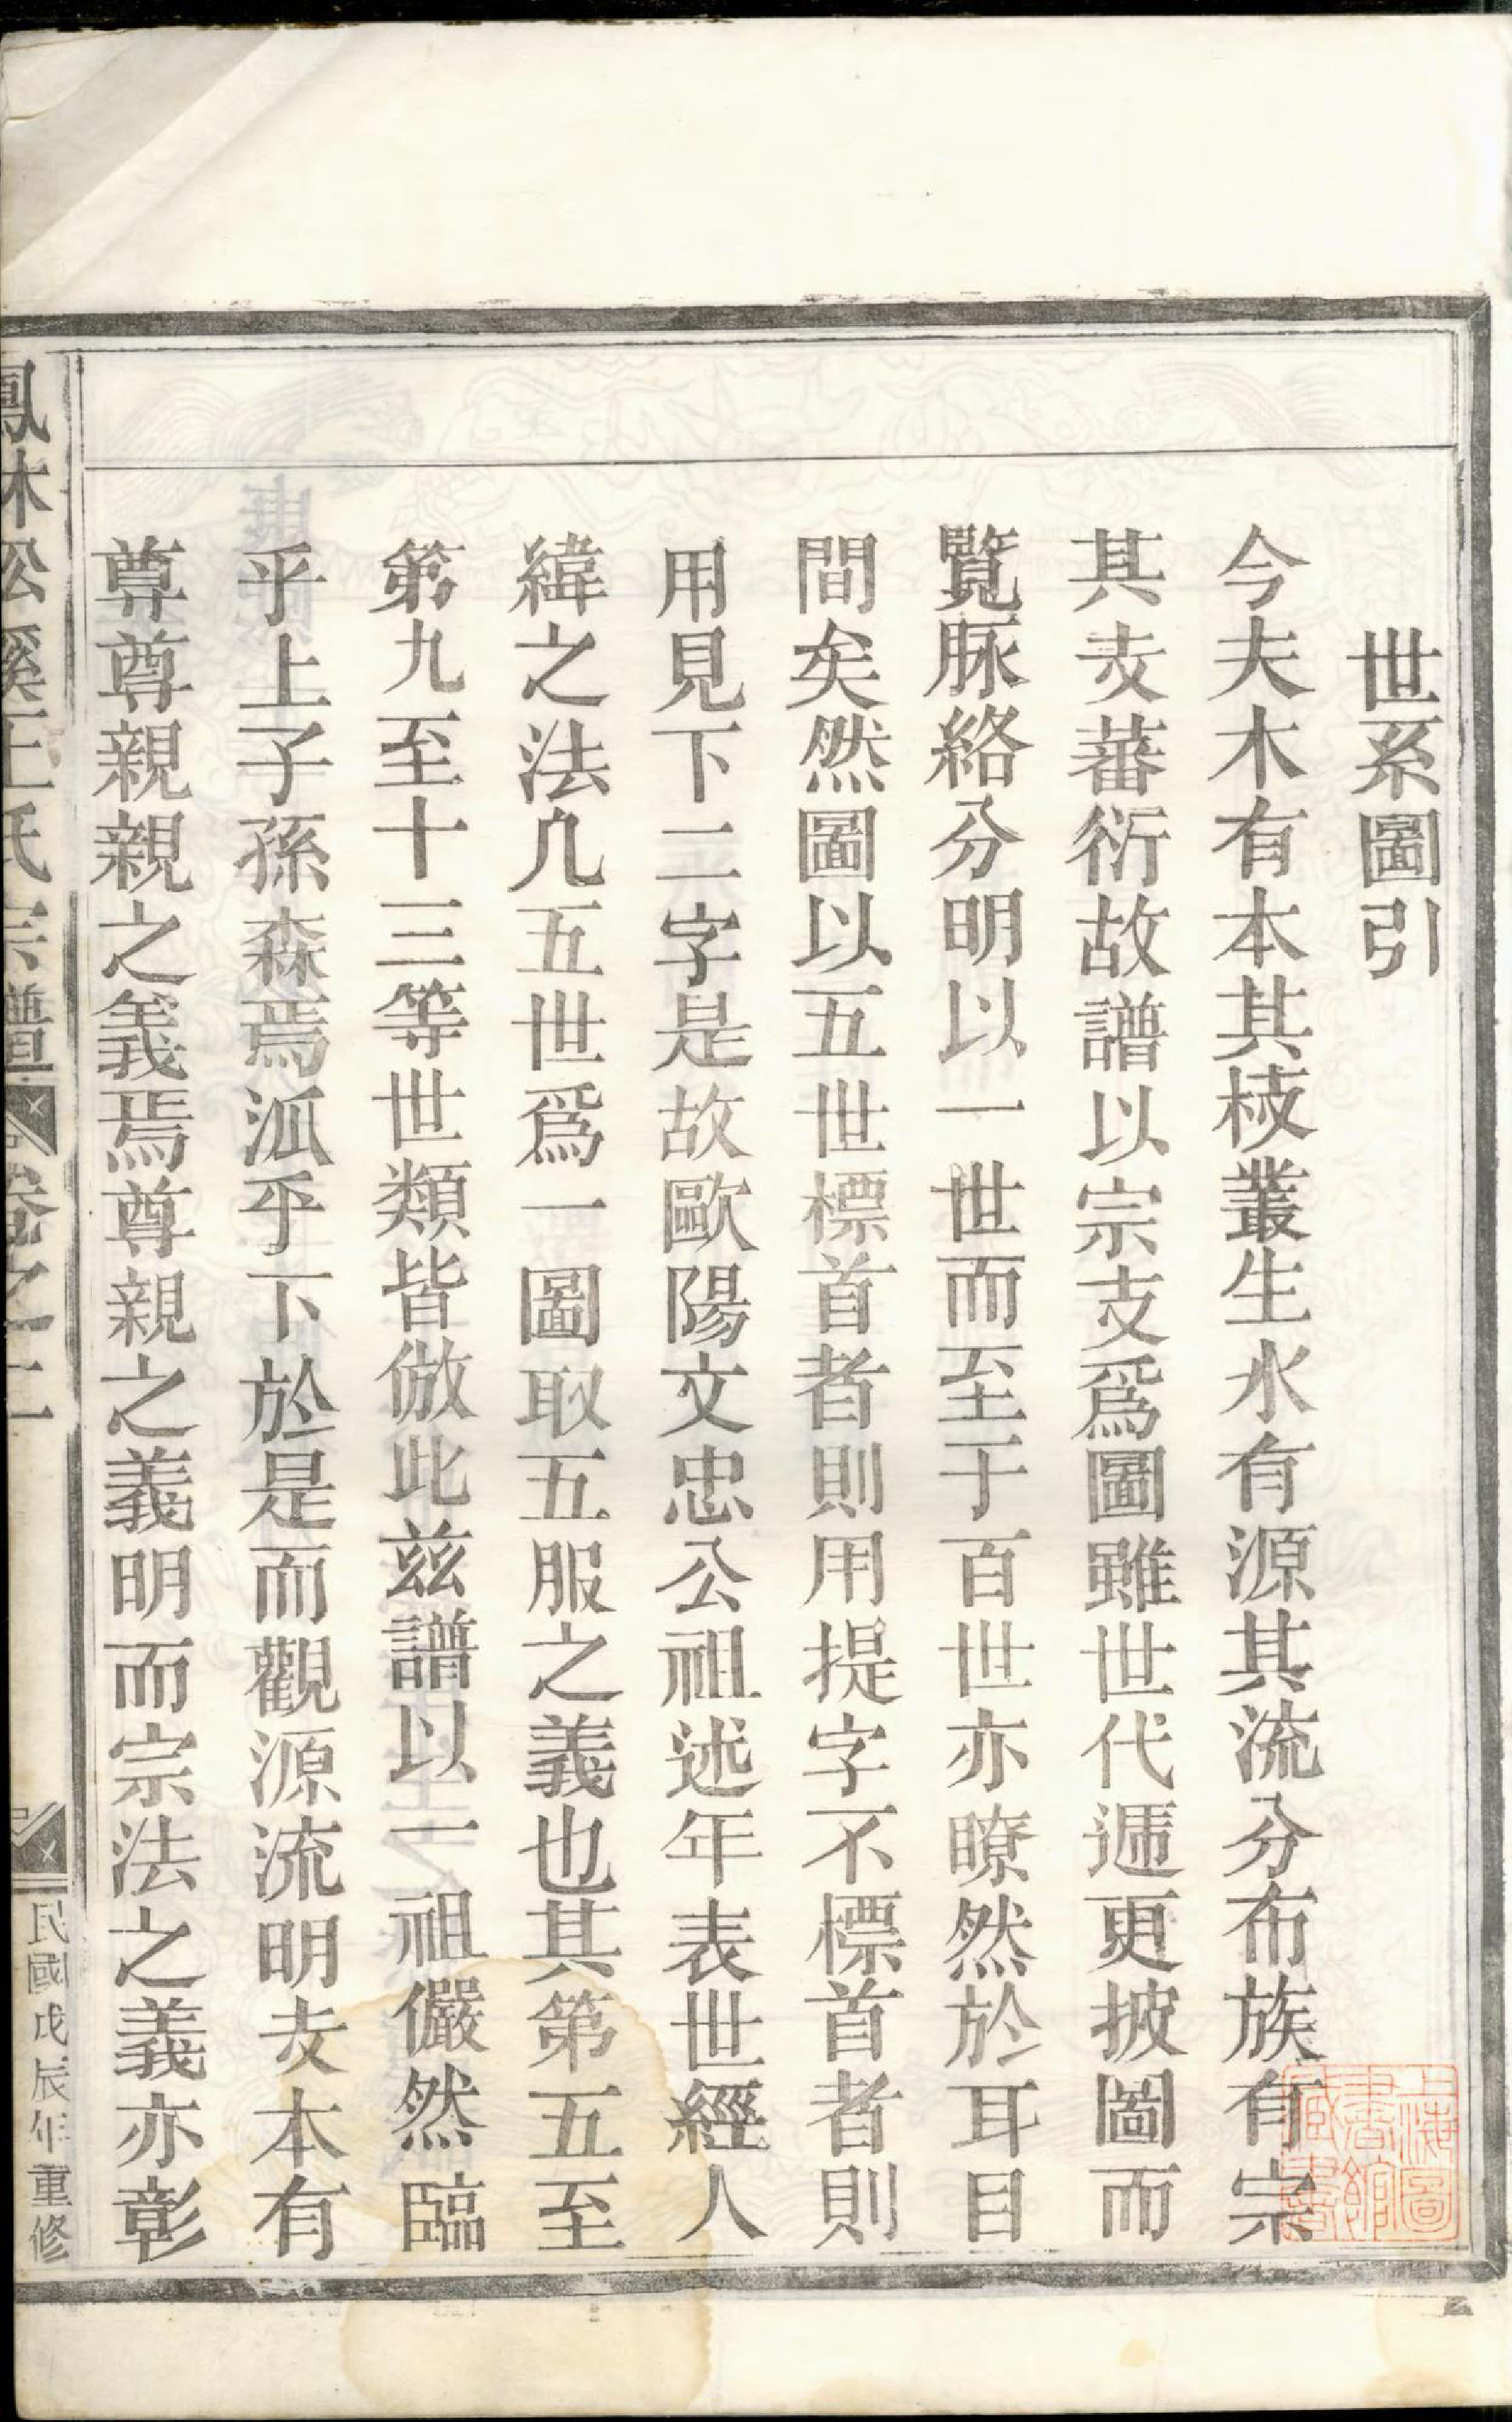 世系圖引
今夫木有本其枝叢生水有源其流分布族有宗
其支蕃衍故譜以宗支爲圖雖世代遞更披圖而
覽脉絡分明以一世而至于百世亦瞭然於耳目
間矣然圖以五世標首者則用提字不標首者則
用見下二字是故歐陽文忠公祖述年表世經人
緯之法凡五世爲一圖取五服之義也其第五至
第九至十三等世類皆倣此兹譜以一祖儼然臨
乎上子孫森焉泒乎下於是而觀源流明支本有
尊尊親親之義焉尊親之義明而宗法之義亦彰
鳳林松溪王氏宗譜
卷之二
民國戊辰年重修
上海圖書館藏書